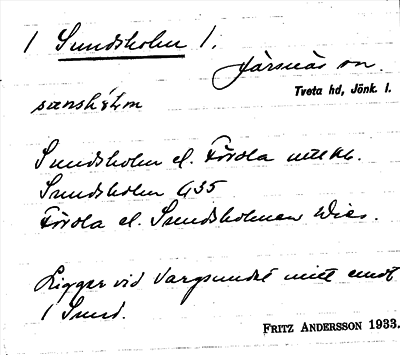 1 Sundsholm 1.
Järsnäs sn.
Tveta hd, Jönk. l.
Sundsholm el. Förola
Sundsholm G35
Förola el. Sundsholmen Wies.
Ligger vid Vargsundet mitt emot
1 Sund.
FRITZ ANDERSSON 1933.